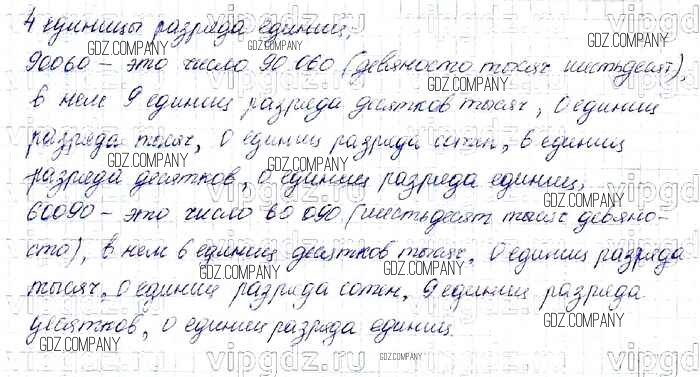 4 единицы разряда единиц,
90060 – это число 90 060 (девяносто тысяч шестьдесят),
в нем 9 единиц разряда десятков тысяч, 0 единиц
разряда тысяч, 0 единиц разряда сотен, 6 единиц
разряда десятков, 0 единиц разряда единиц,
60090 – это число 60 090 (шестьдесят тысяч девяно-
сто), в нем 6 единиц десятков тысяч, 0 единиц разряда
тысяч, 0 единиц разряда сотен, 9 единиц разряда
десятков, 0 единиц разряда единиц.